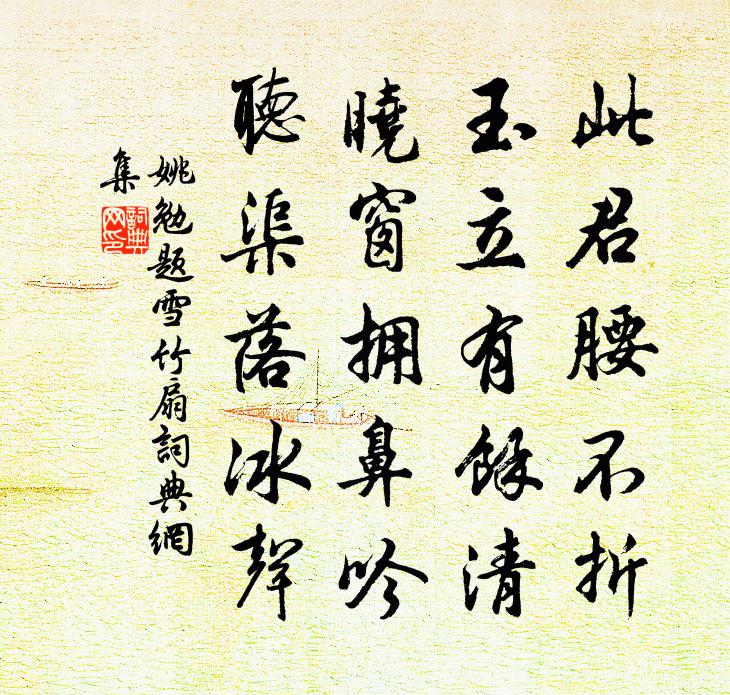 此君腰不折
玉立有餘清
曉窗拥鼻吟
聽渠落冰聲
姚勉题雪竹扇詞典網
集
詞典
网印